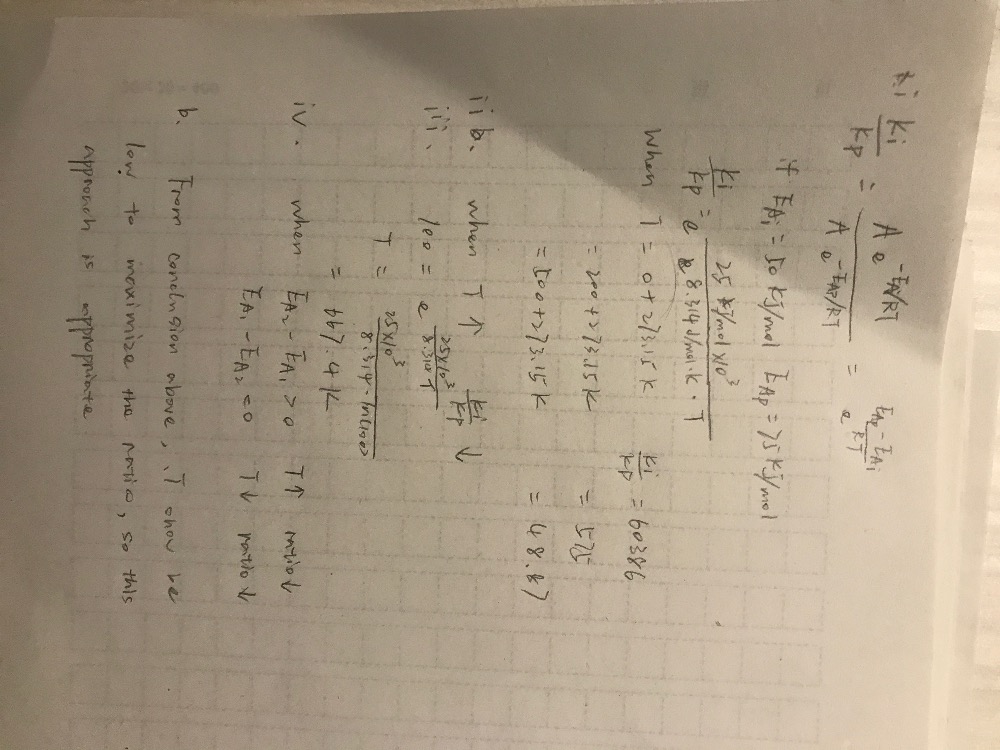 i ki/kp = A e^(-EAi/RT) / A e^(-EAp/RT) = e^((EAp - EAi)/RT)
if EAi = 50 KJ/mol EAp = 75 KJ/mol
ki/kp = e^(25 KJ/mol x10^3 / 8.314 J/mol.k · T)
When T = 0 + 273.15 K ki/kp = 60386
= 200 + 273.15 K = 575
= 500 + 273.15 K = 48.87
ii b. when T ↑ ki/kp ↓
iii. 100 = e^(25x10^3 / 8.314 T)
T = 25x10^3 / 8.314 · ln(100)
= 667.4 K
iv. when EA2 - EA1 > 0 T↑ ratio↓
EA1 - EA2 < 0 T↓ ratio↓
b. From conclusion above, T be
low to maximize the ratio, so this
approach is appropriate